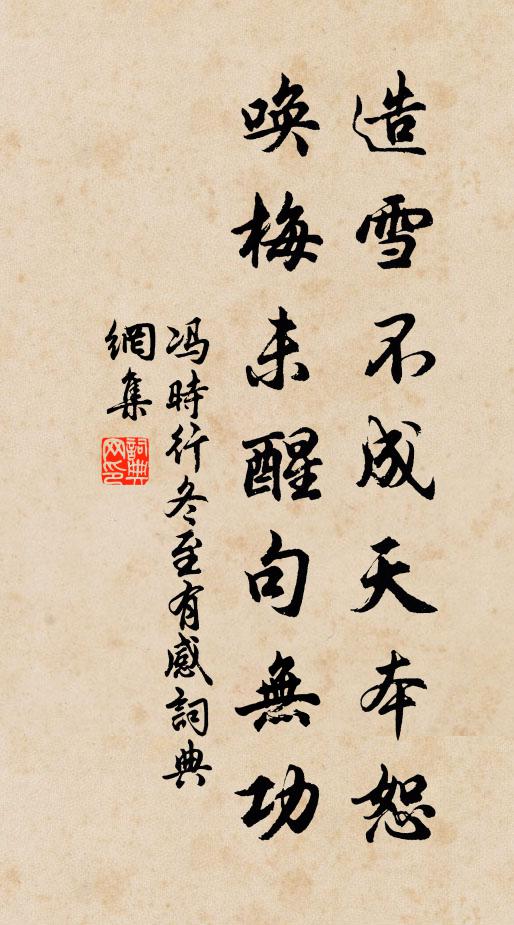 造雪不成天本恕
唤梅未醒句無功
冯時行冬至有感詞典
網集
詞典
网印